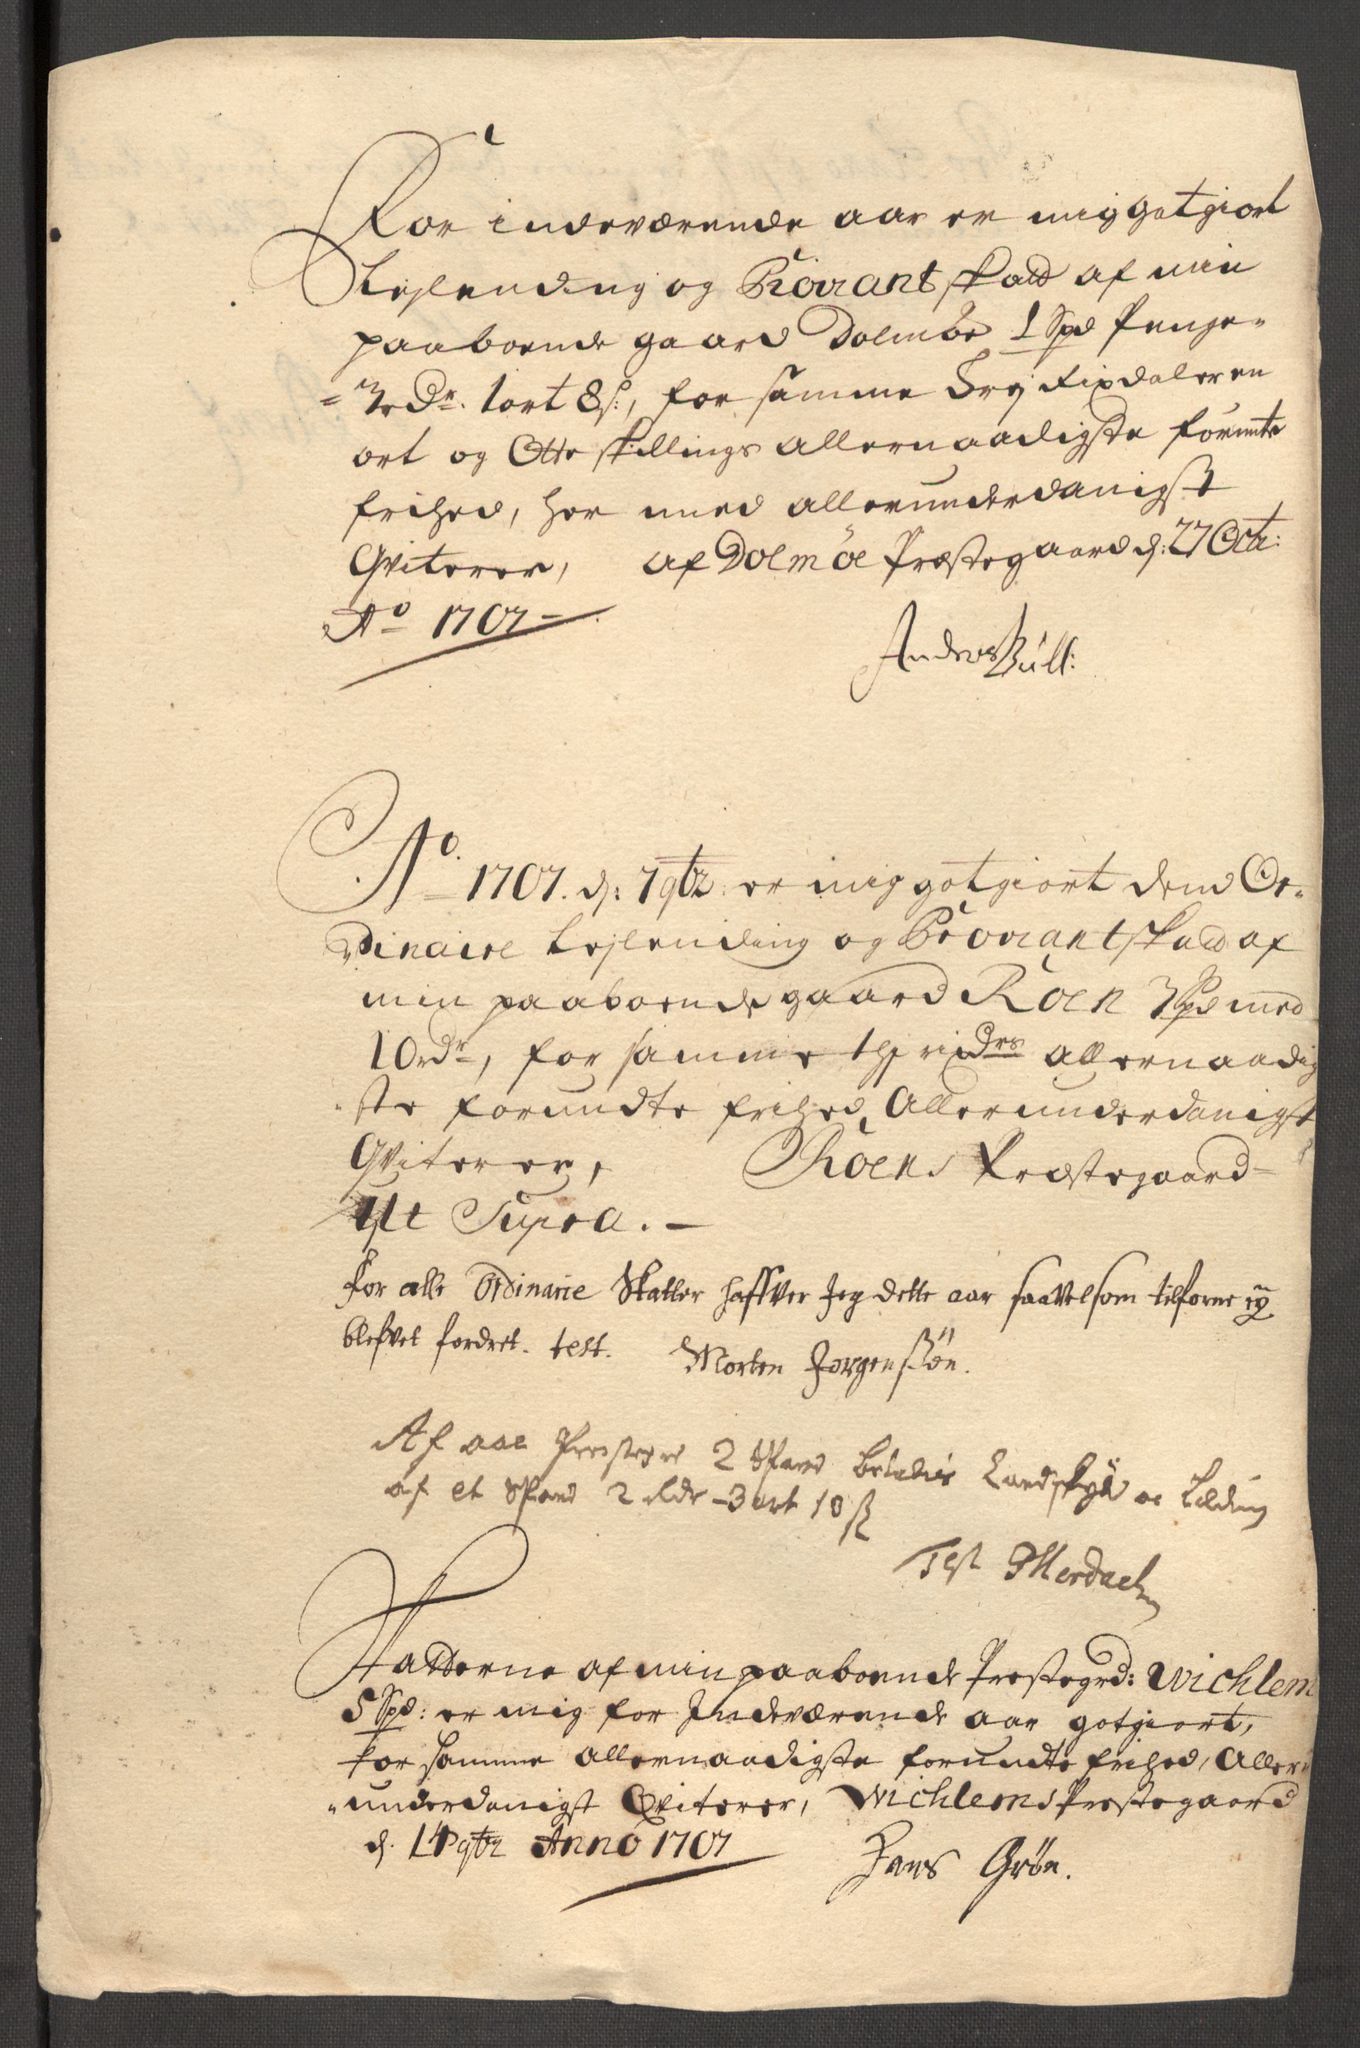 For indeværende aar er mig gotgiort
Leylending og Proviant skatt af min
paaboende gaard Dolmøe 1 Spd Penge
3 rdr. 1 ort 8 s:, for samme Trej Rixdaler en
ort og Otte skillings allernaadigste forunte
frihed, her med allerunderdanigst
Qviterer, af Dolmøe Præstegaard d: 27 Octr:
Ao 1707
Anders Bull:
Ao 1707. d: 7 9br: er mig gotgiort dend Or-
dinaire Leylending og Proviant skatt af
min paaboende gaard Röen 3 Spd med
10 rdr, for samme thj rixdrs allernaadig
ste forundte frihed Allerunderdanigst
Qviterer, Röens Præstegaard
Ut Supra.
for alle Ordinarie Skatter haffver Jeg dette aar saavelsom tilforne ey
blefvet fordret. test. Morten Jørgenssøn.
Af aae Prestegrd 2 Spand betales Landskyld oc Leding
af et Spand 2 Rdr 3 ort 10 ß
Test
Skatterne af min paaboende Prestegrd: Wichlem
5 Spd: er mig for Indeværende aar gotgiort,
for samme allernaadigste forundte frihed, Aller-
underdanigst Qviterer, Wichlems Prestegaard
d. 14 9br Anno 1707
Hans Grön.